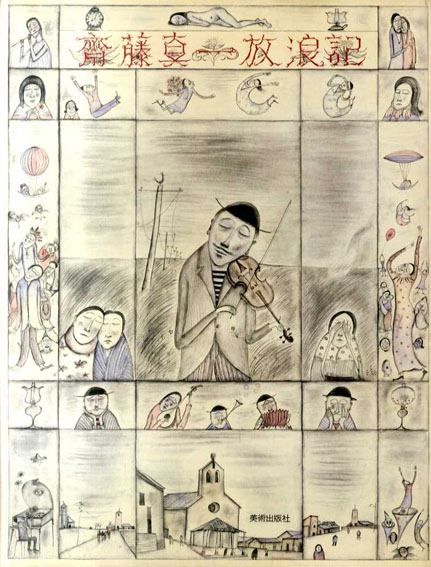 齋藤真一放浪記
美術出版社